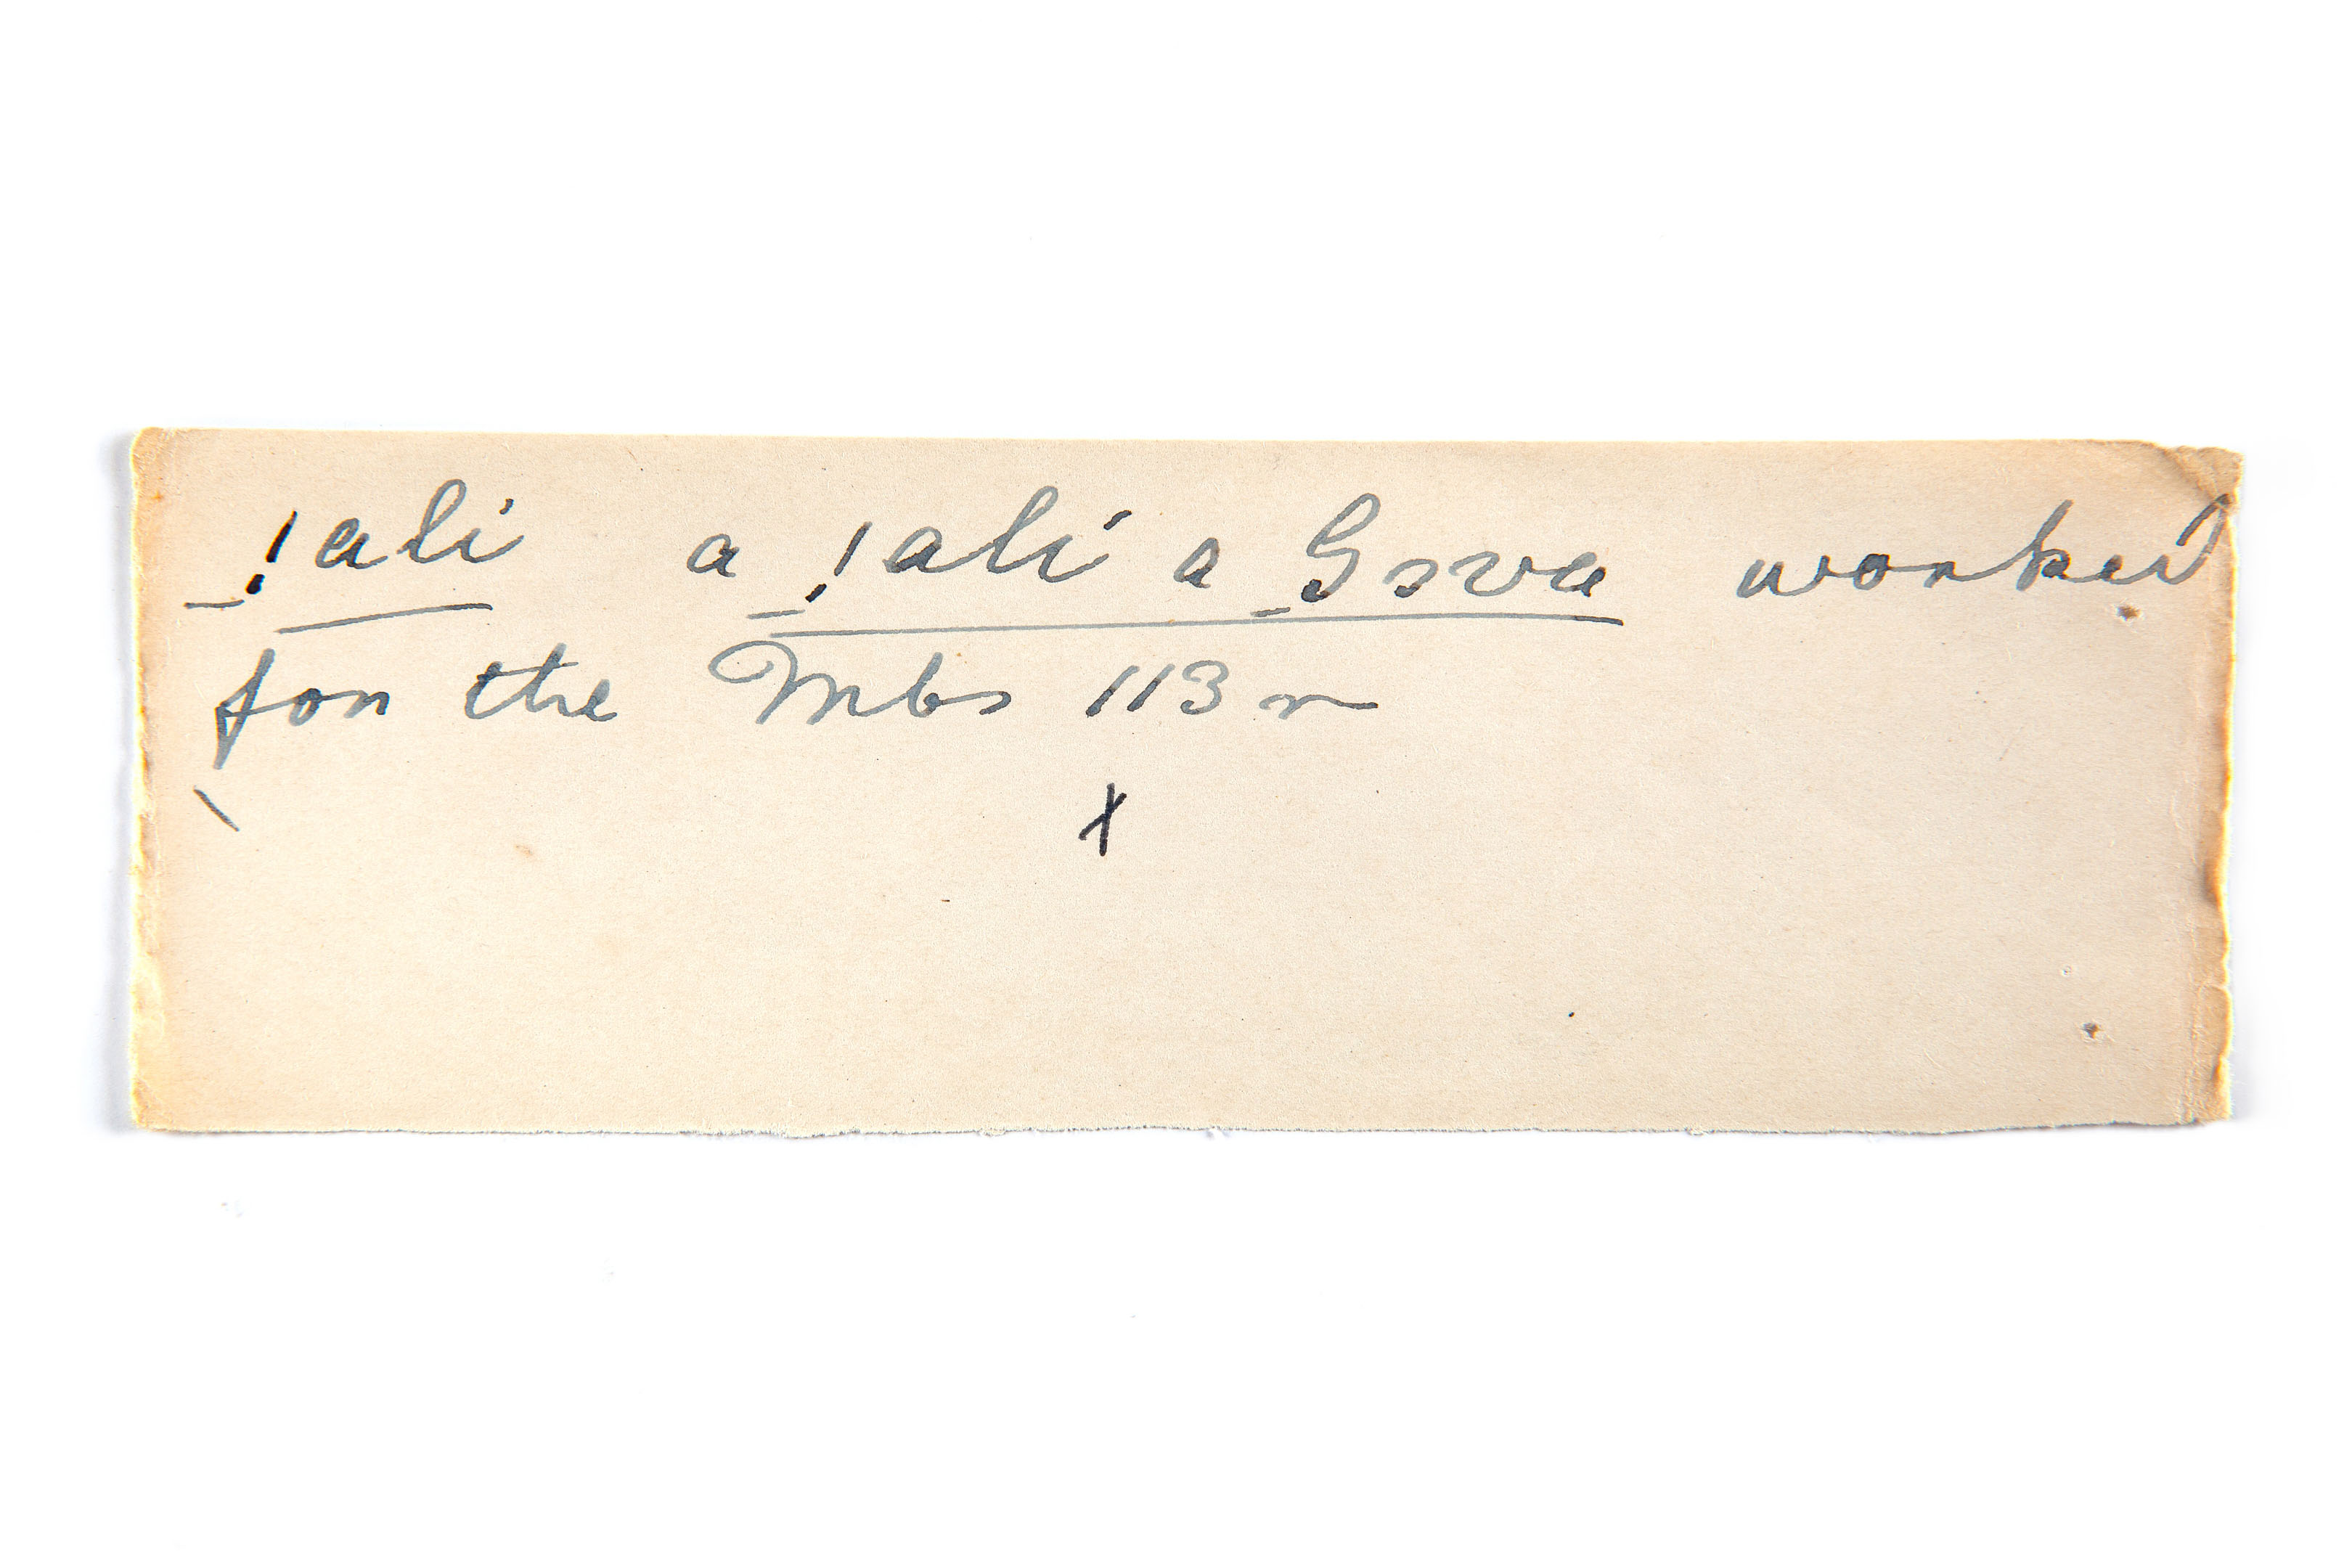 !ali a !ali a Gova worked
for the Mbs 113 r
x